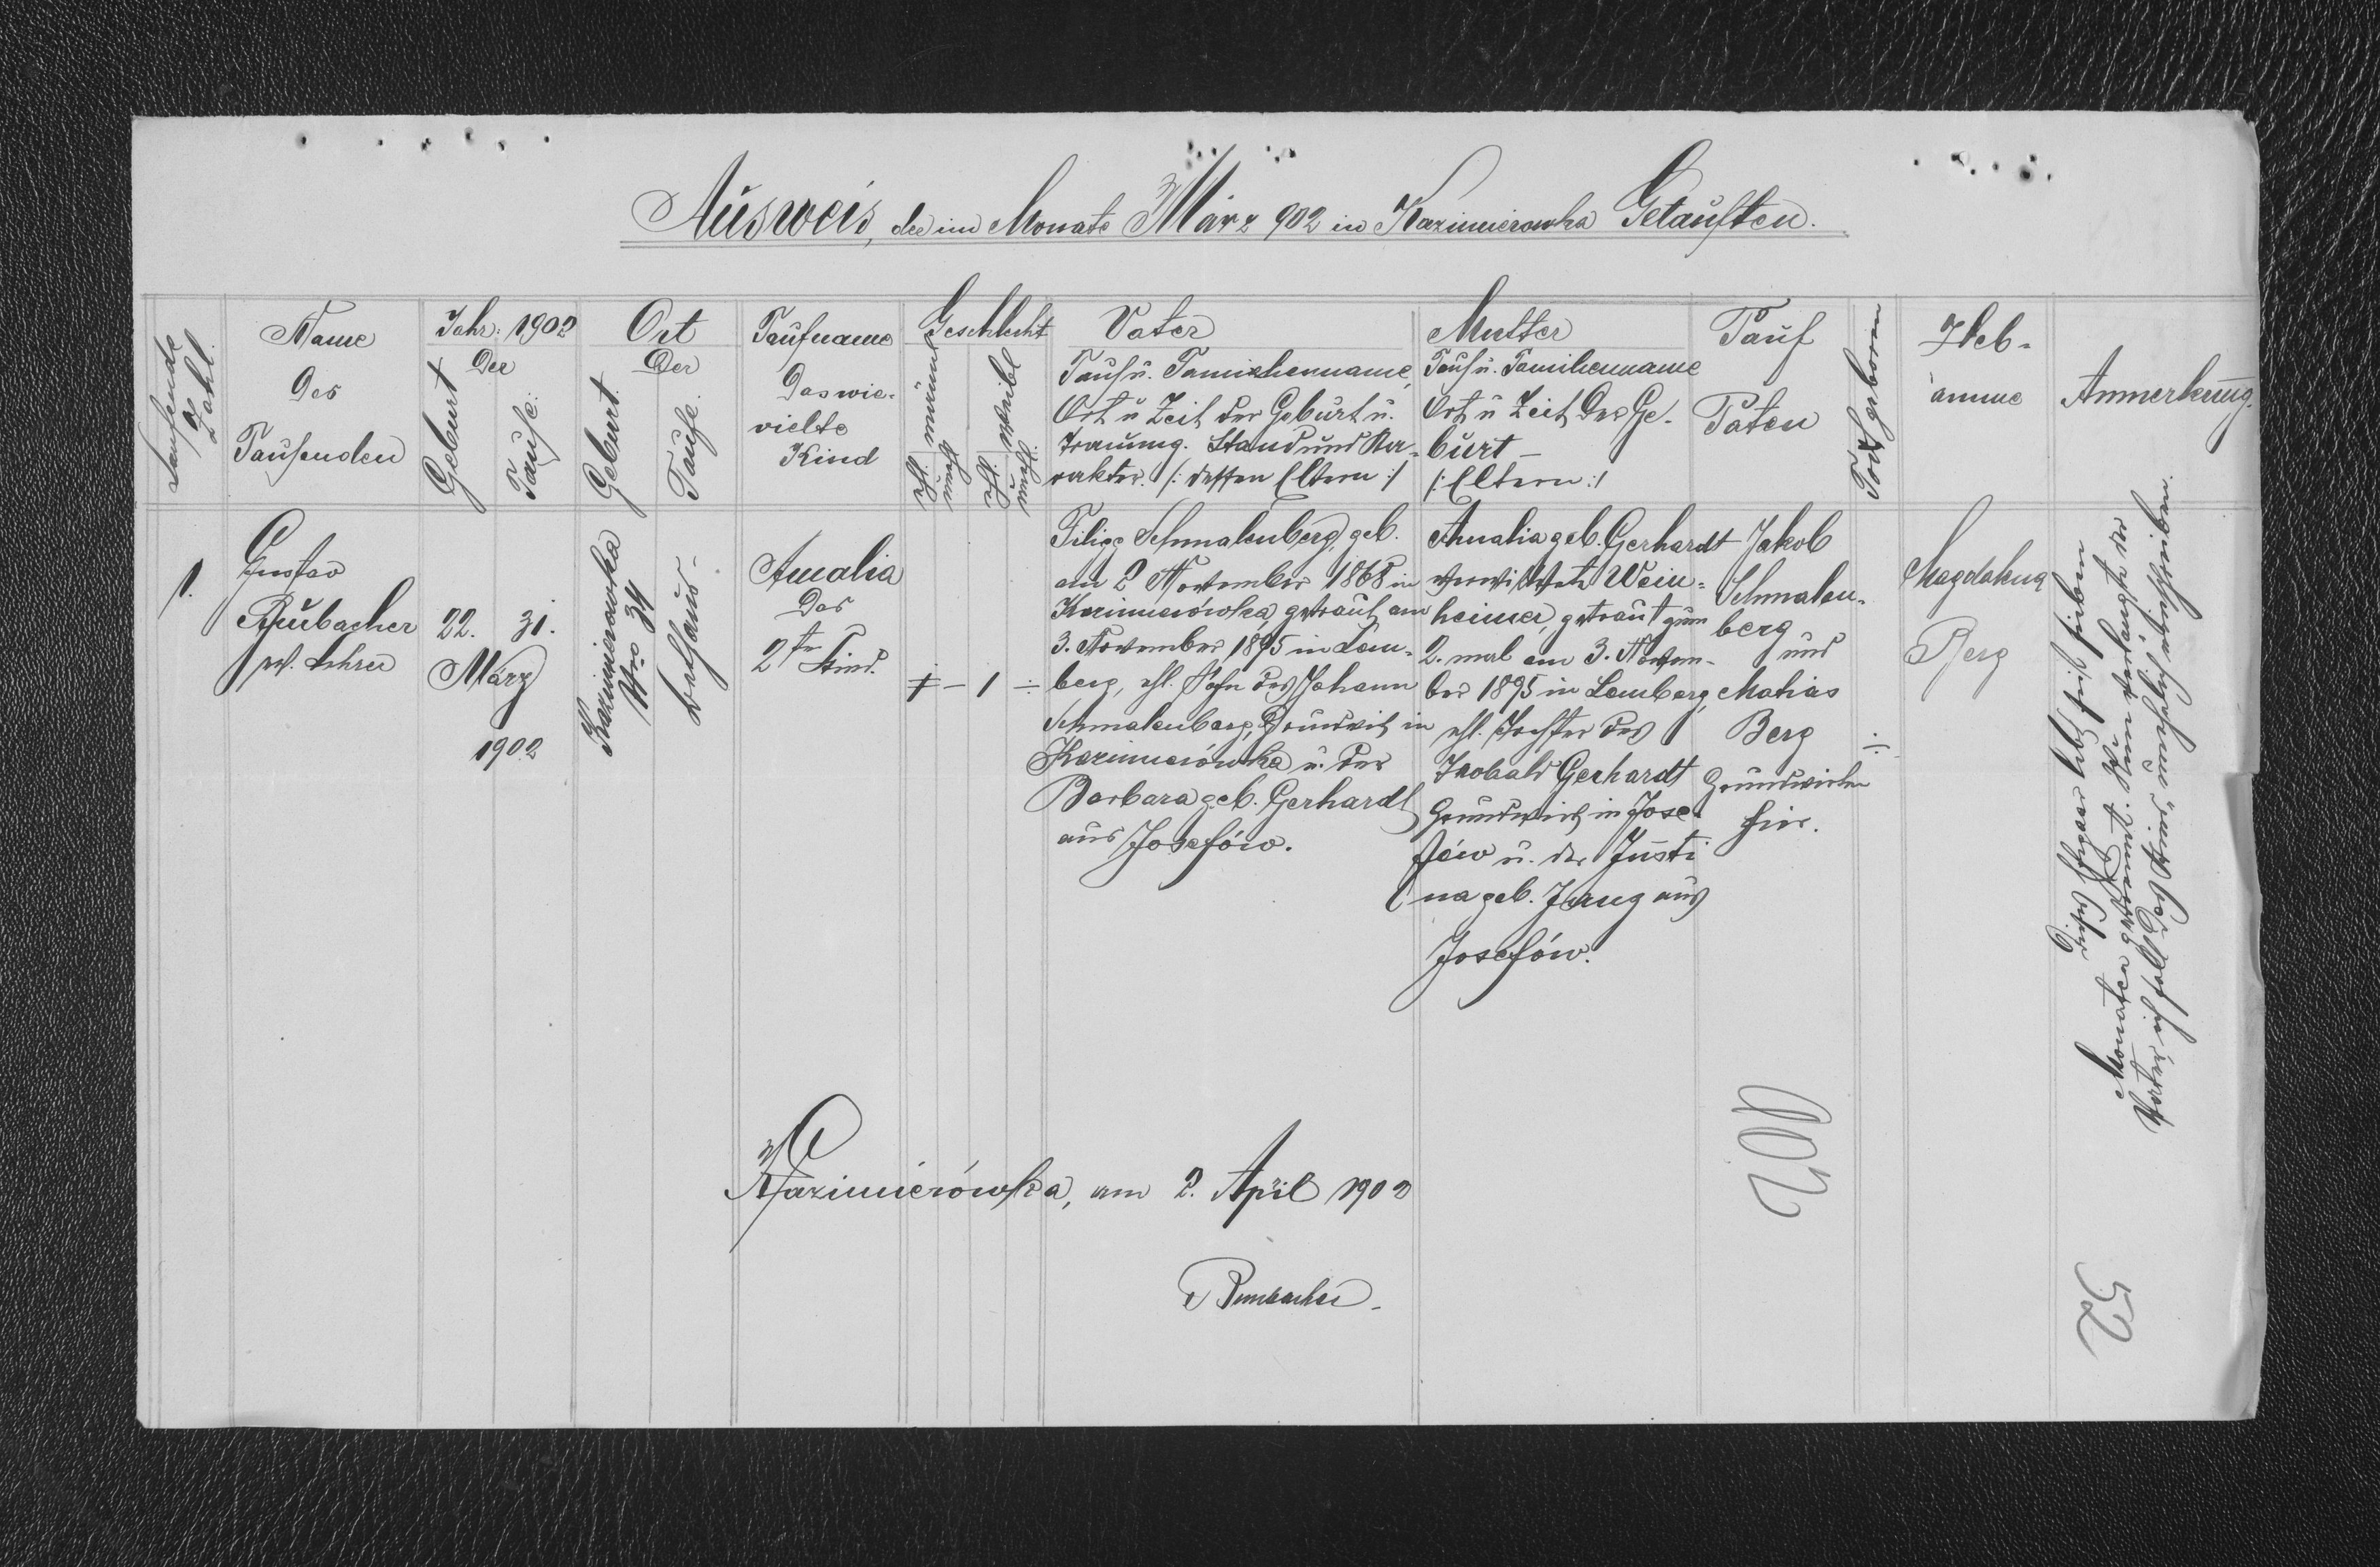 Ausweis, der im Monate März 902 in Kazimierowka Getauften.
Laufende
Zahl.
Name
Des
Taufenden
Jahr: 1902
Der
Geburt
Taufe.
Ort
Der
Geburt.
Taufe.
Taufname
Das wie-
vielte
Kind
Geschlecht
männl
ehl.
unehl
weibl
ehl.
unehl.
Vater
Tauf u. Familienname,
Ort u Zeit der Geburt u.
Trauung. Stand und Ka-
rakter. /: dessen Eltern :/
Mutter
Tauf u. Familienname
Ort u Zeit Der Ge-
burt –
/: Eltern :/
Tauf
Paten
Todtgeboren
Heb-
amme
Anmerkung.
1.
Gustav
Rubacher
ev. Lehrer
22.
31.
März
1902
Kazimierowka
Nro 34
Bethaus -
Amalia
Das
2te Kind.
- 1 ÷
Filipp Schmalenberg, geb.
am 2 November 1868 in
Kazimierówka, getraut am
3. November 1895 in Lem-
berg, ehl. Sohn des Johann
Schmalenberg, Grundwirt in
Kazimierówka u. der
Barbara geb. Gerhardt
aus Josefów.
Amalia geb. Gerhardt
verwitwete Wein-
heimer, getraut zum
2. mal am 3. Novem-
ber 1895 in Lemberg,
ehl. Tochter des
Theobald Gerhardt
Grundwirt in Jose-
fów u. der Justi
na geb. Jaug aus
Josefów.
Jakob
Schmalen-
berg
und
Mathias
Berg
Grundwirten
hier.
÷
Magdalena
Berg
Dieses Ehepaar lebt seit sieben
Monaten getrennt. Nun verlangte der
Vater, ich soll das Kind „unehelich" einschreiben.
Kazimierówka, am 2. April 1902
Rumbacher
902
52